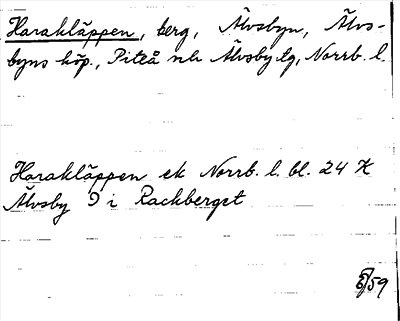 Harakläppen, berg, Älvsbyn, Älvs-
byns köp., Piteå o. Älvsby tg, Norrb. l.
Harakläppen ek Norrb. l. bl. 24 K
Älvsby 9 i Rackberget
59